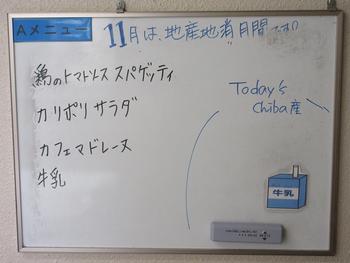 Aメニュー
11月は、地産地消月間です!!
鶏のトマトソース スパゲッティ
カリポリ サラダ
カフェマドレーヌ
牛乳
Today's
Chiba産
牛乳